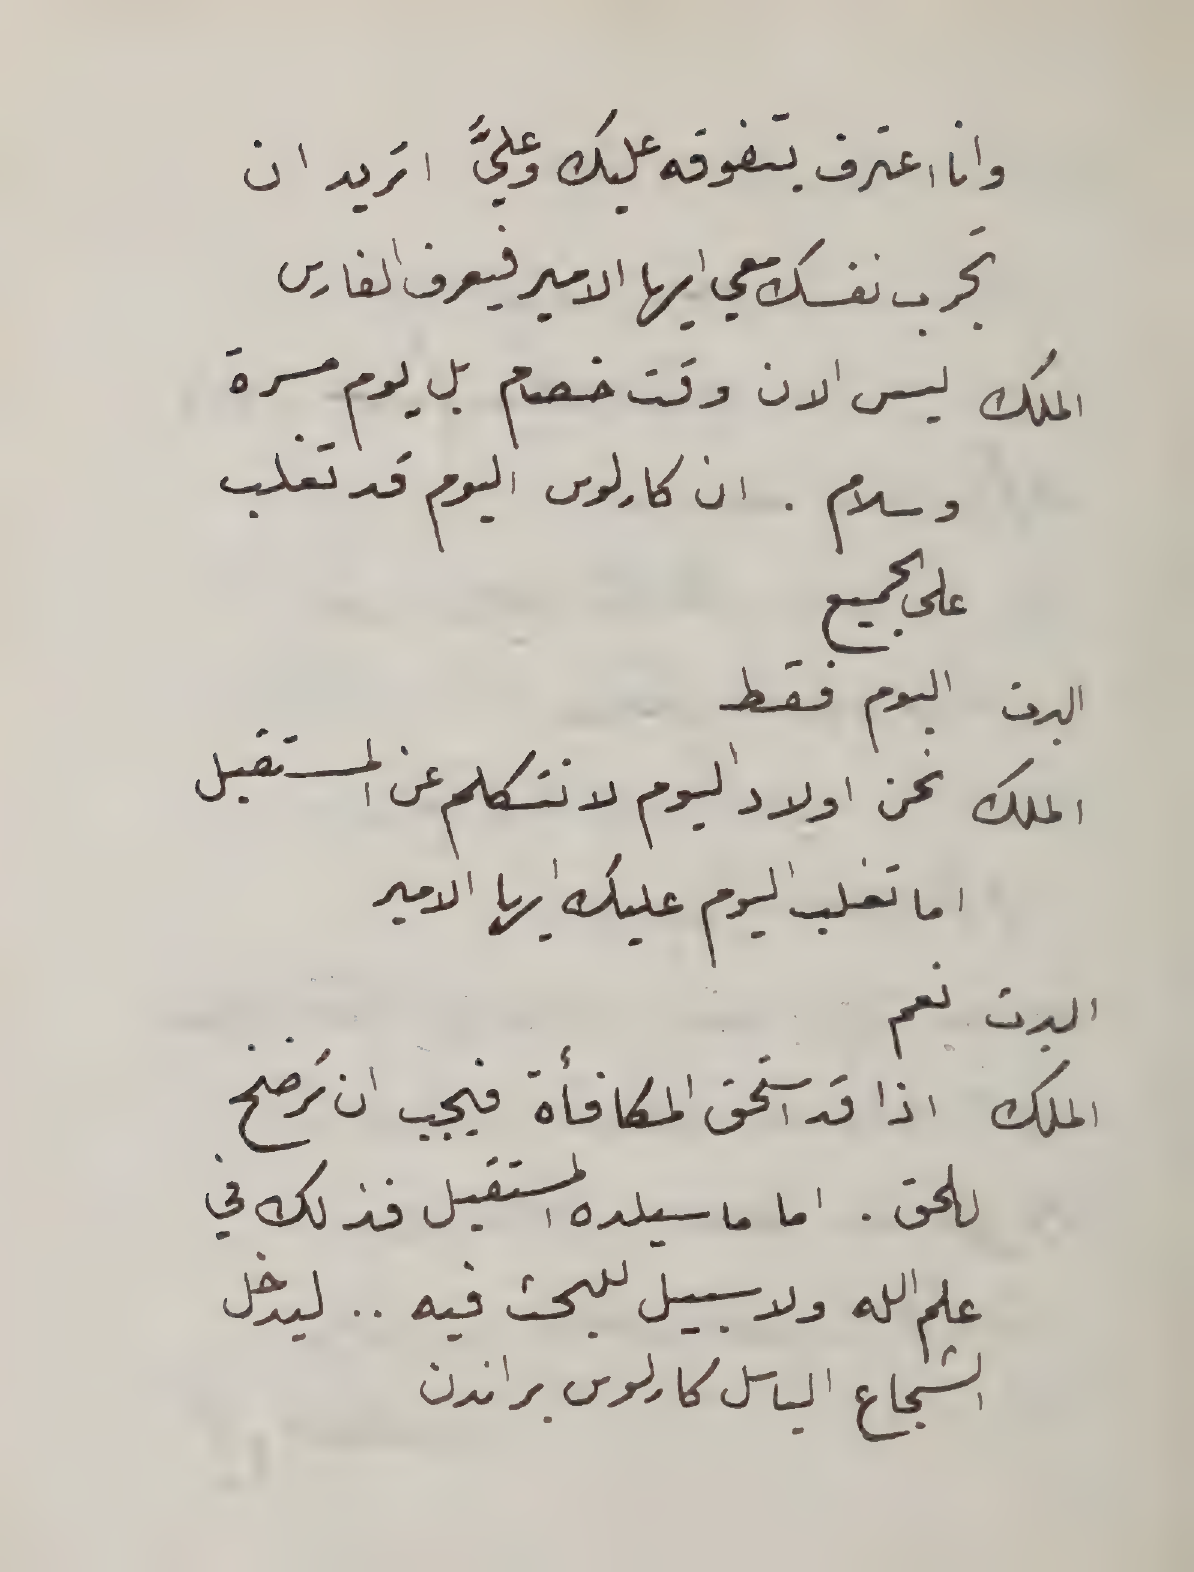 وانا اعترف بتفوقه عليك وعليَّ اتريد ان
تجرب نفسك معي ايها الامير فيعرف الفارس
الملك ليس الان وقت خصام بل يوم مسرة
وسلام . ان كارلوس اليوم قد تغلب
على الجميع
البرت اليوم فقط
الملك نحن اولاد اليوم لا نتكلم عن المستقبل
اما تغلب اليوم عليك ايها الامير
البرت نعم
الملك اذا قد استحق المكافأة فيجب ان نرضخ
للحق . اما ما سيلده المستقبل فذلك في
علم الله ولا سبيل للبحث فيه .. ليدخل
الشجاع الباسل كارلوس براندن